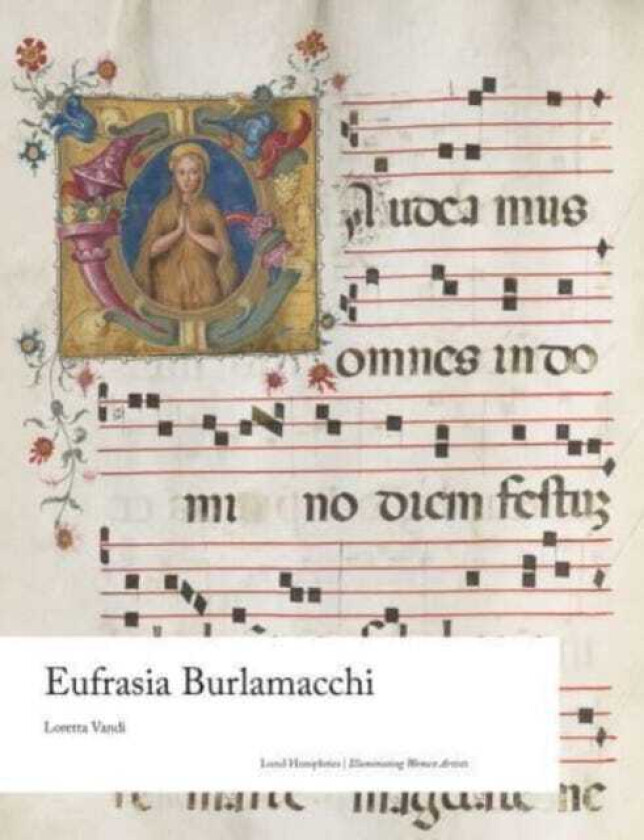 Audea mus
omnes in do
mi no diem festuʒ
Eufrasia Burlamacchi
Loretta Vandi
Lund Humphries | Illuminating Women Artists